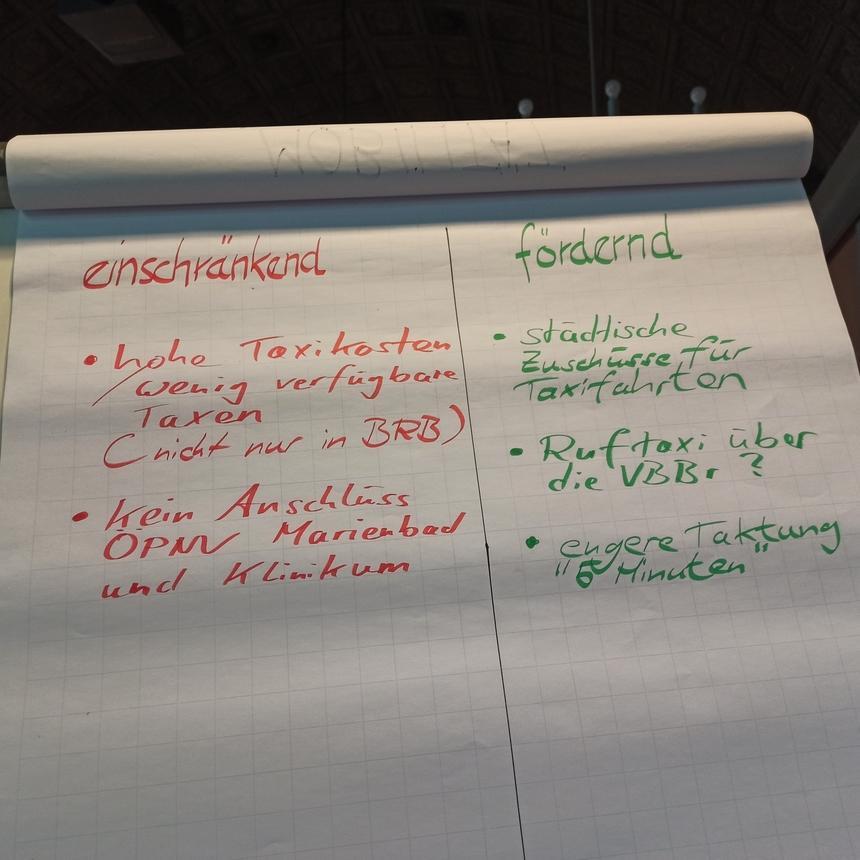 einschränkend
• hohe Taxikosten
/wenig verfügbare
Taxen
(nicht nur in BRB)
• kein Anschluss
ÖPNV Marienbad
und Klinikum
fördernd
• städtische
Zuschüsse für
Taxifahrten
• Ruftaxi über
die VBBr ?
• engere Taktung
"5 Minuten"